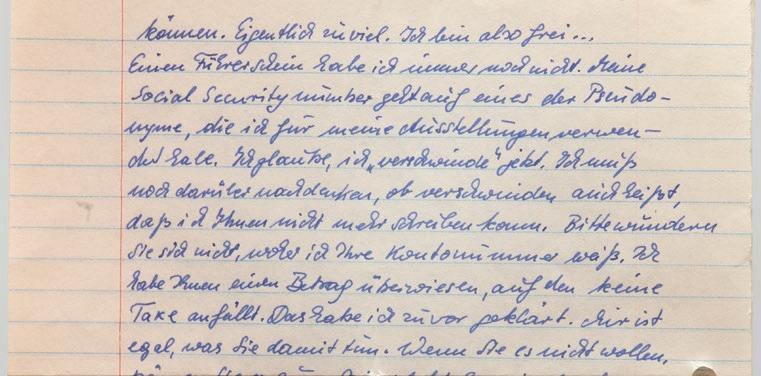 können. Eigentlich zu viel. Ich bin also frei...
Einen Führerschein habe ich immer noch nicht. Meine
Social Security number geht auf eines der Pseudo-
nyme, die ich für meine Ausstellungen verwen-
det habe. Ich glaube, ich „verschwinde“ jetzt. Ich muß
noch darüber nachdenken, ob verschwinden auch heißt,
daß ich Ihnen nicht mehr schreiben kann. Bitte wundern
Sie sich nicht, woher ich Ihre Kontonummer weiß. Ich
habe Ihnen einen Betrag überwiesen, auf den keine
Taxe anfällt. Das habe ich zuvor geklärt. Mir ist
egal, was Sie damit tun. Wenn Sie es nicht wollen,